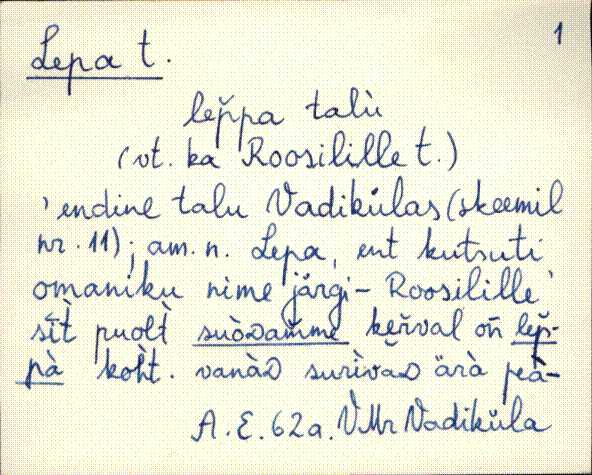 1
Lepa t.
lep̌pa talù
(vt. ka Roosilille t.)
'endine talu Vadikülas (skeemil
nr. 11); am. n. Lepa, ent kutsuti
omaniku nime järgi – Roosilille'
sīt̀ puolt̀ suòᴅam̆me keřval oǹ lep̌-
pà koh̀t. vanàᴅ surìvaᴅ ärà peà-
A. E. 62a. VMr Vadiküla